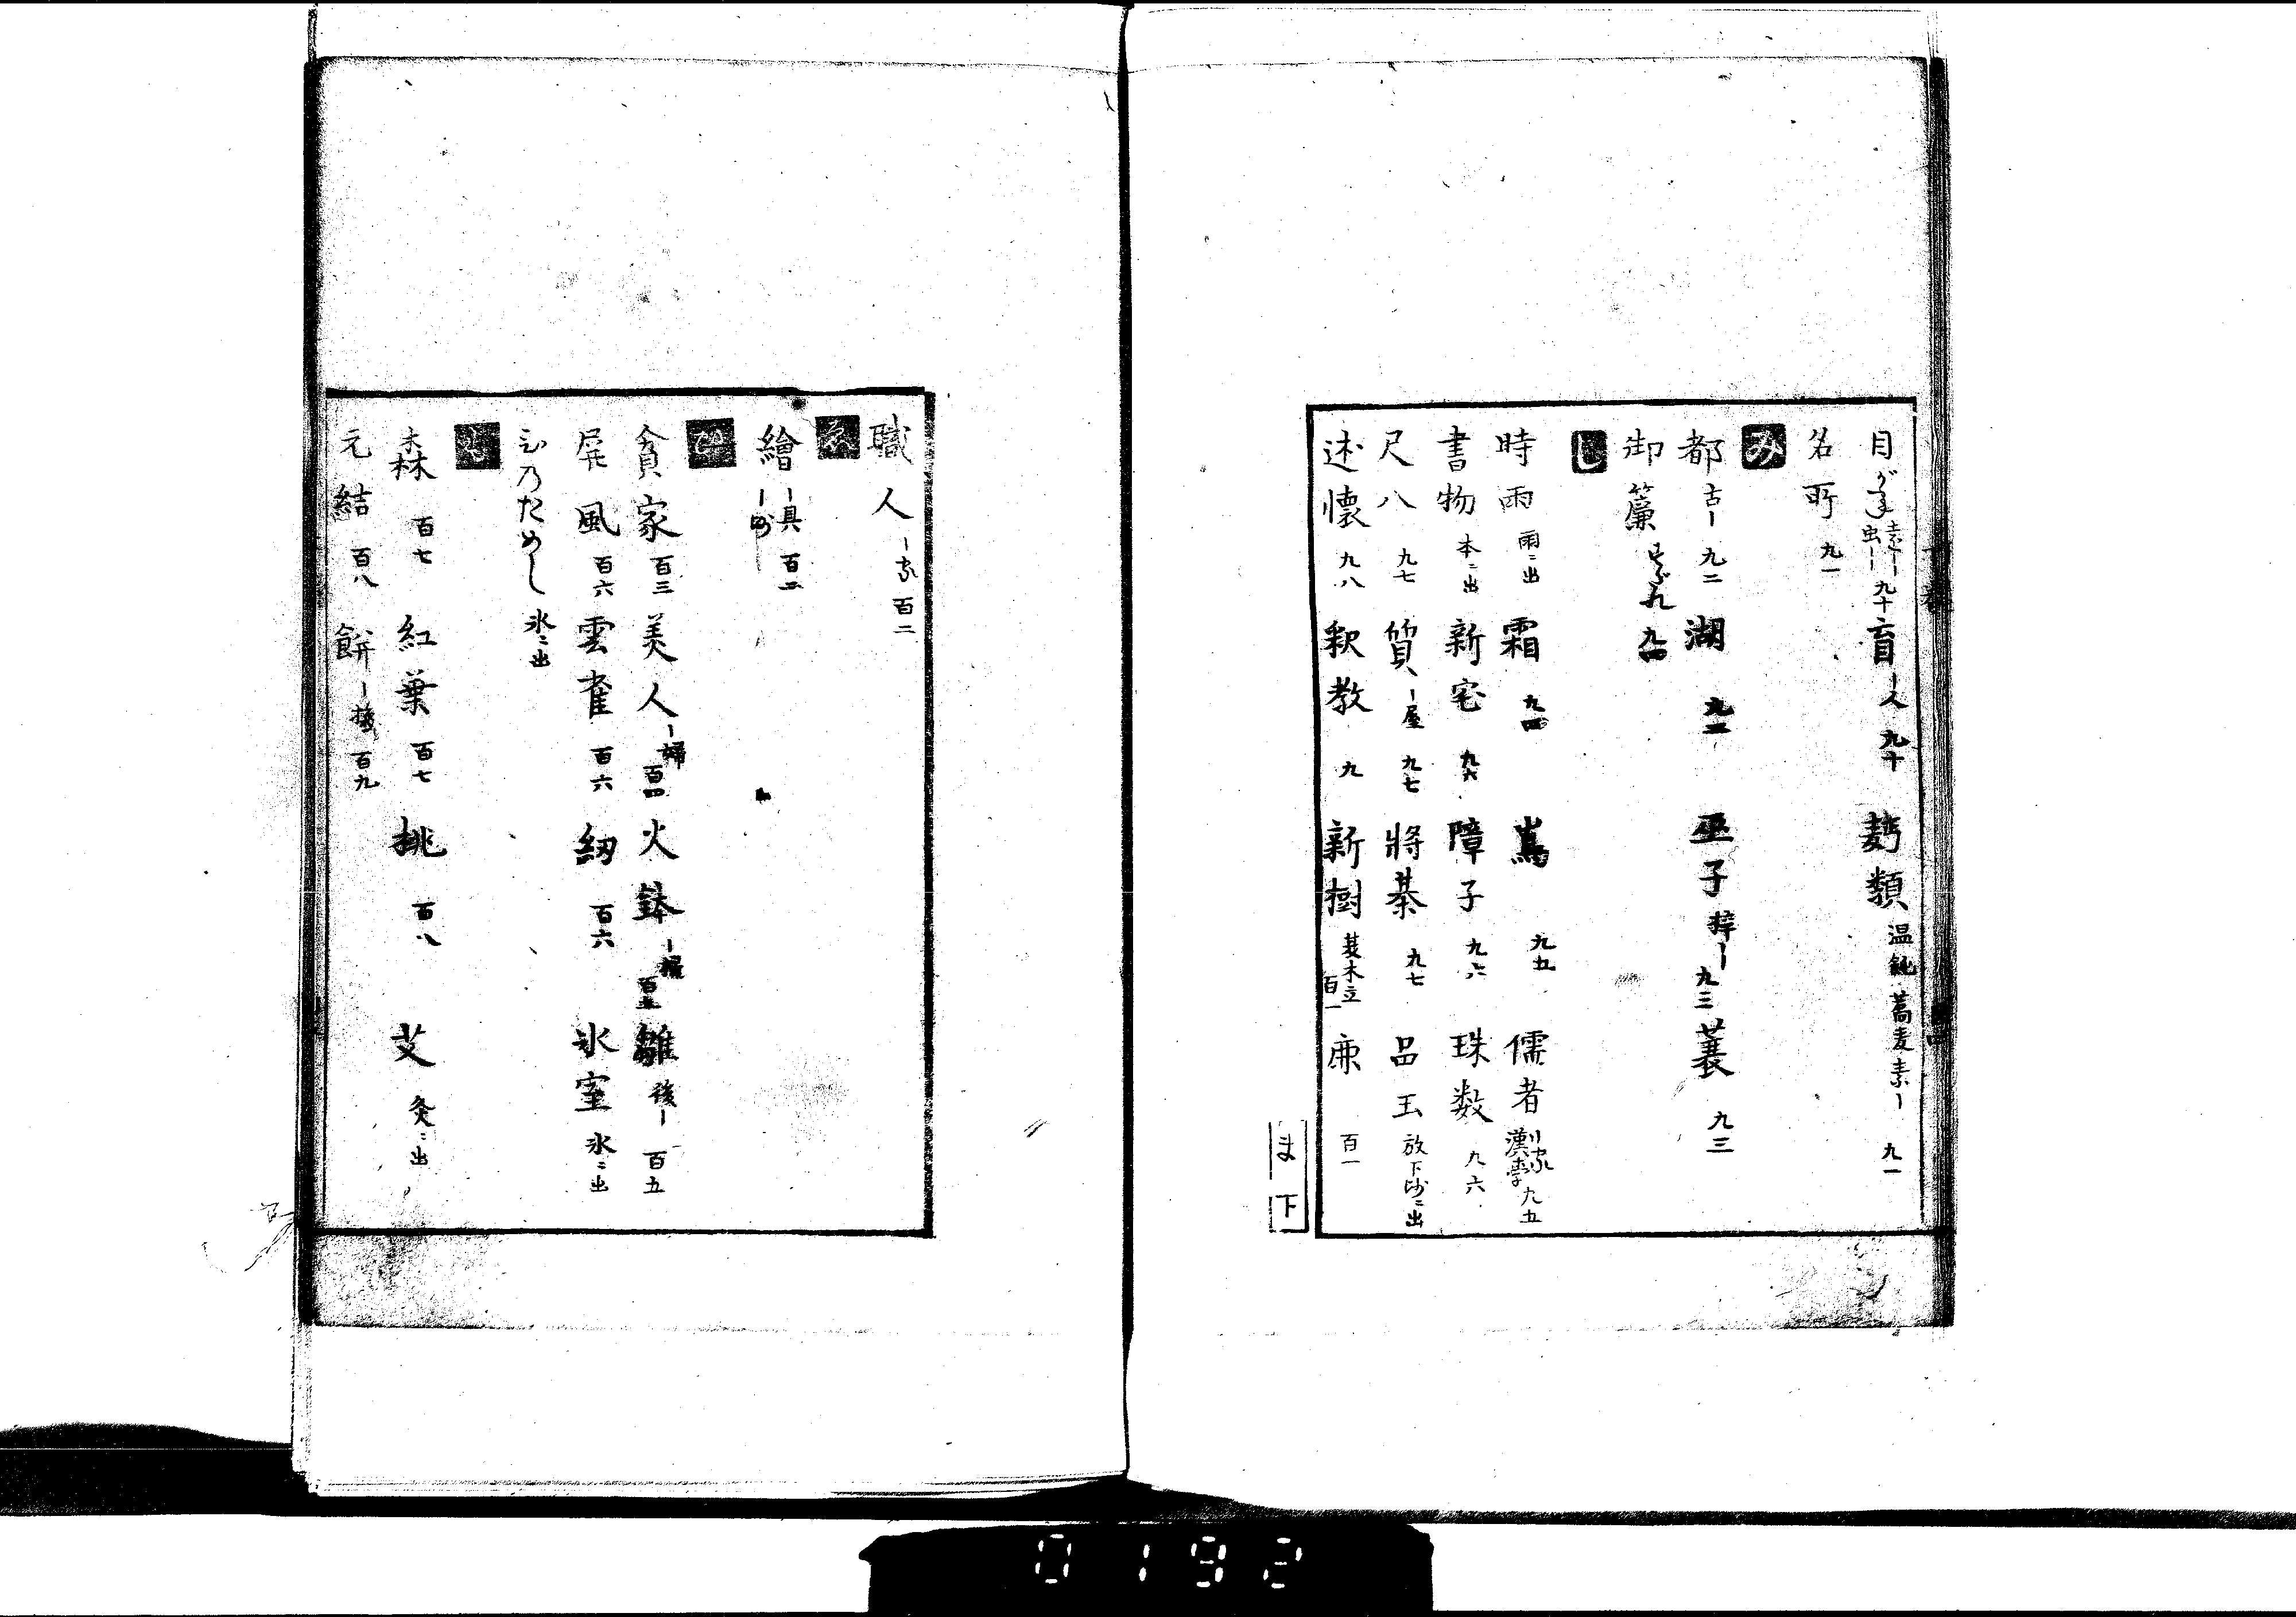 目がね 遠ー 虫ー 九十 盲 ー人 九十 麪類 温飩 蕎麦 素ー 九一
名所 九一
み
都 古ー 九二 湖 九二 巫子 梓ー 九三 蓑 九三
御簾 すだれ 九四
し
時雨 雨ニ出 霜 九四 九五 儒者 ー家 漢学 九五
書物 本ニ出 新宅 九六 障子 九六 珠数 九六
尺八 九七 質 ー屋 九七 將棊 九七 品玉 放下師ニ出
述懷 九八 釈教 九 新樹 夏木立 百一 鹿 百一
ま 下
職人 ー家 百二
ゑ
繪 ー具 ー師 百二
ひ
貧家 百三 美人 ー婦 百四 火鉢 百五 雛 後ー 百五
屏風 百六 雲雀 百六 紉 百六 氷室 氷ニ出
ひのためし 氷ニ出
も
森 百七 紅葉 百七 挑 百八 艾 灸ニ出
元結 百八 餅 百九
0192